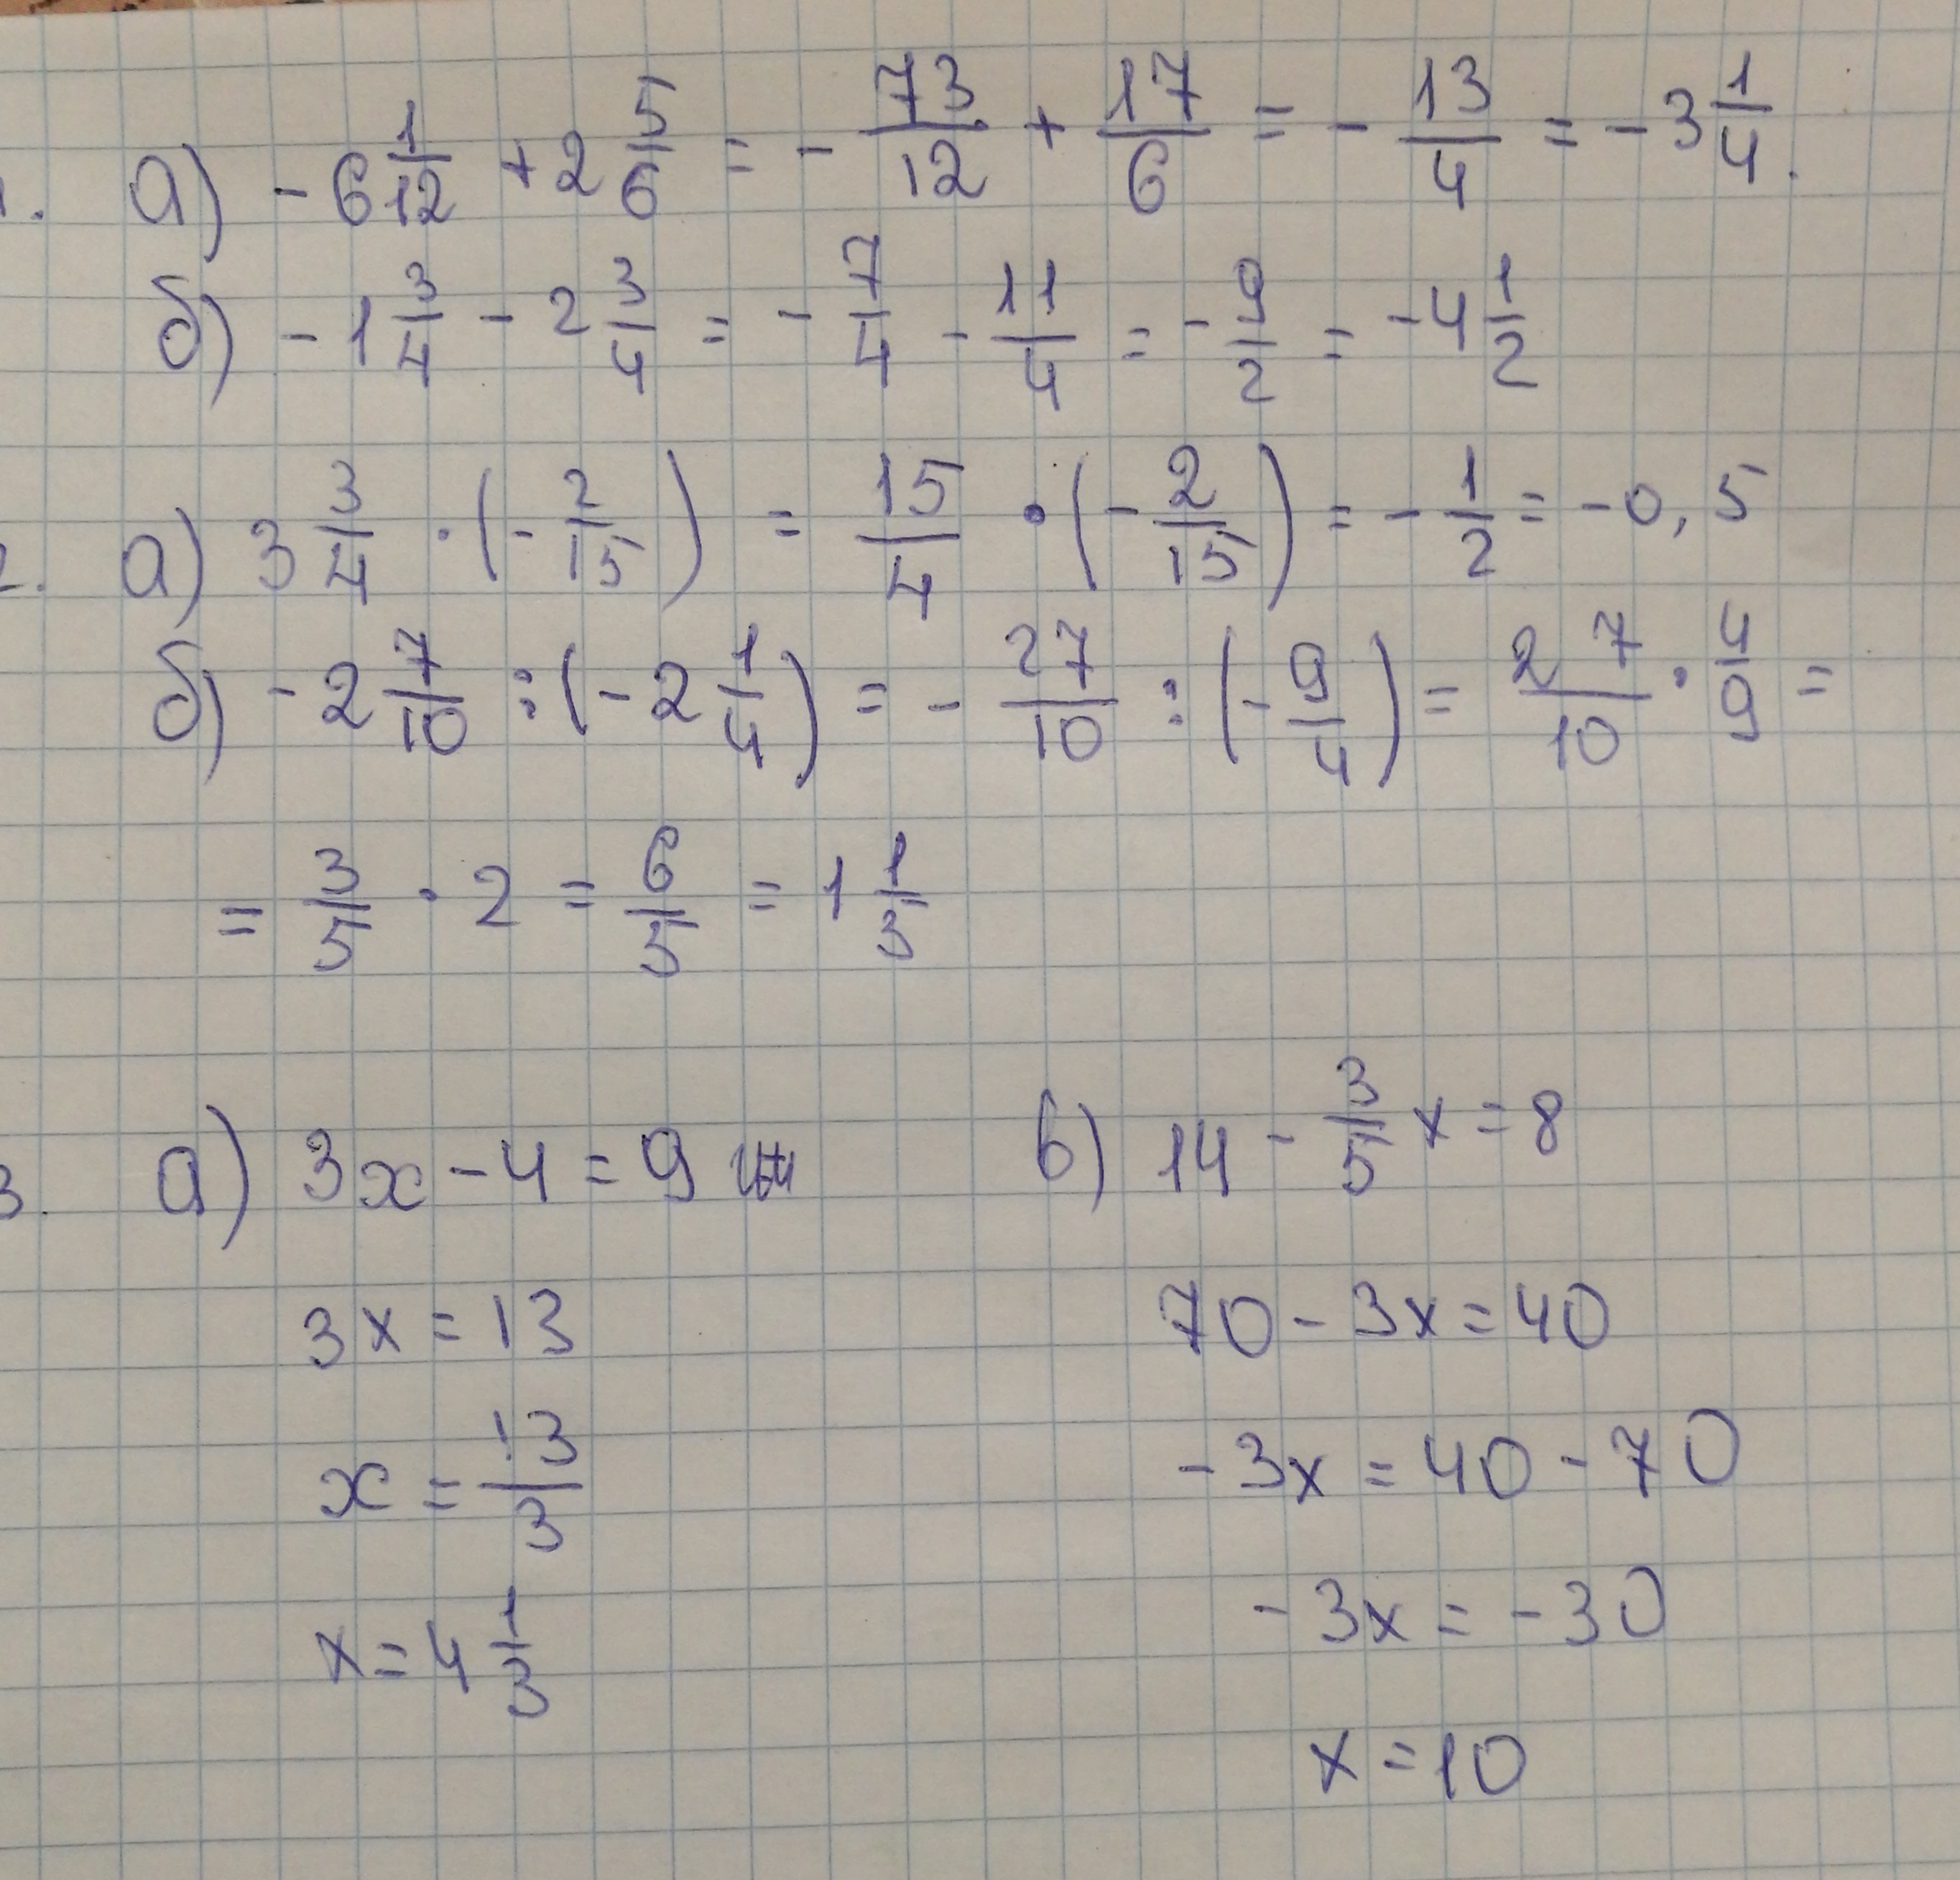 1. а) -6 1/12 + 2 5/6 = - 73/12 + 17/6 = - 13/4 = -3 1/4.
б) -1 3/4 - 2 3/4 = - 7/4 - 11/4 = - 9/2 = -4 1/2
2. а) 3 3/4 · (- 2/15) = 15/4 · (- 2/15) = - 1/2 = -0,5
б) -2 7/10 : (-2 1/4) = - 27/10 : (- 9/4) = 27/10 · 4/9 =
= 3/5 · 2 = 6/5 = 1 1/5
3. а) 3x - 4 = 9
3x = 13
x = 13/3
x = 4 1/3
б) 14 - 3/5 x = 8
70 - 3x = 40
-3x = 40 - 70
-3x = -30
x = 10